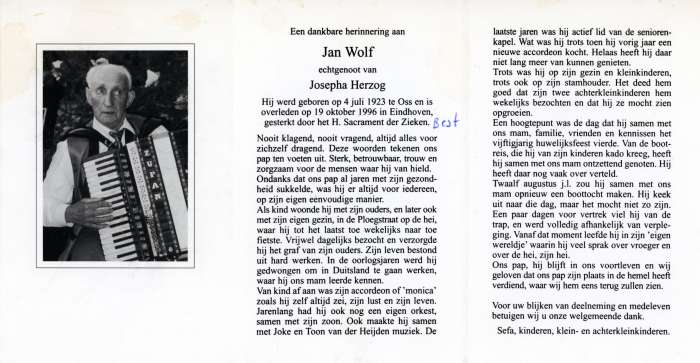 Een dankbare herinnering aan
Jan Wolf
echtgenoot van
Josepha Herzog
Hij werd geboren op 4 juli 1923 te Oss en is
overleden op 19 oktober 1996 in Eindhoven,
gesterkt door het H. Sacrament der Zieken. Best
Nooit klagend, nooit vragend, altijd alles voor
zichzelf dragend. Deze woorden tekenen ons
pap ten voeten uit. Sterk, betrouwbaar, trouw en
zorgzaam voor de mensen waar hij van hield.
Ondanks dat ons pap al jaren met zijn gezond-
heid sukkelde, was hij er altijd voor iedereen,
op zijn eigen eenvoudige manier.
Als kind woonde hij met zijn ouders, en later ook
met zijn eigen gezin, in de Ploegstraat op de hei,
waar hij tot het laatst toe wekelijks naar toe
fietste. Vrijwel dagelijks bezocht en verzorgde
hij het graf van zijn ouders. Zijn leven bestond
uit hard werken. In de oorlogsjaren werd hij
gedwongen om in Duitsland te gaan werken,
waar hij ons mam leerde kennen.
Van kind af aan was zijn accordeon of 'monica'
zoals hij zelf altijd zei, zijn lust en zijn leven.
Jarenlang had hij ook nog een eigen orkest,
samen met zijn zoon. Ook maakte hij samen
met Joke en Toon van der Heijden muziek. De
laatste jaren was hij actief lid van de senioren-
kapel. Wat was hij trots toen hij vorig jaar een
nieuwe accordeon kocht. Helaas heeft hij daar
niet lang meer van kunnen genieten.
Trots was hij op zijn gezin en kleinkinderen,
trots ook op zijn stamhouder. Het deed hem
goed dat zijn twee achterkleinkinderen hem
wekelijks bezochten en dat hij ze mocht zien
opgroeien.
Een hoogtepunt was de dag dat hij samen met
ons mam, familie, vrienden en kennissen het
vijftigjarig huwelijksfeest vierde. Van de boot-
reis, die hij van zijn kinderen kado kreeg, heeft
hij samen met ons mam ontzettend genoten. Hij
heeft daar nog vaak over verteld.
Twaalf augustus j.l. zou hij samen met ons
mam opnieuw een boottocht maken. Hij keek
uit naar die dag, maar het mocht niet zo zijn.
Een paar dagen voor vertrek viel hij van de
trap, en werd volledig afhankelijk van verple-
ging. Vanaf dat moment leefde hij in zijn 'eigen
wereldje' waarin hij veel sprak over vroeger en
over de hei, zijn hei.
Ons pap, hij blijft in ons voortleven en wij
geloven dat ons pap zijn plaats in de hemel heeft
verdiend, waar wij hem eens terug zullen zien.
Voor uw blijken van deelneming en medeleven
betuigen wij u onze welgemeende dank.
Sefa, kinderen, klein- en achterkleinkinderen.